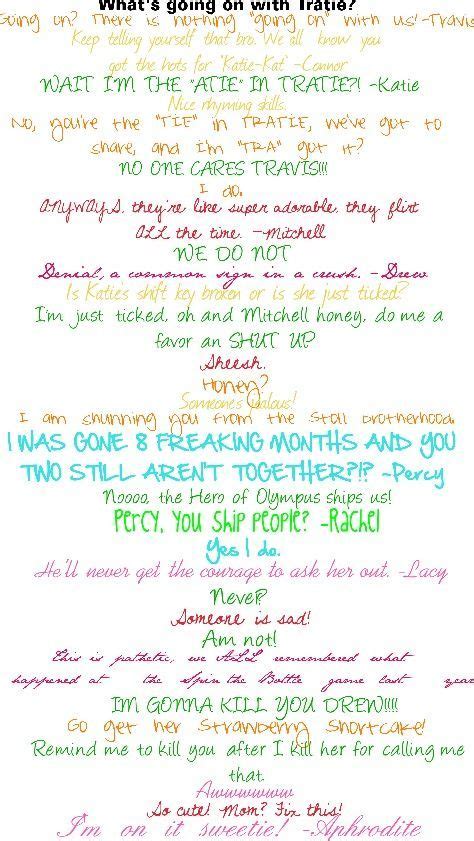 What's going on with Tratie?
Going on? There is nothing "going on" with us! -Travis
Keep telling yourself that bro. We all know you
got the hots for "Katie-Kat" -Connor
WAIT I'M THE "ATIE" IN TRATIE?! -Katie
Nice rhyming skills.
No, you're the "TIE" in TRATIE, we've got to
share, and I'm "TRA" got it?
NO ONE CARES TRAVIS!!!
I do.
ANYWAYS, they're like super adorable, they flirt
ALL the time. -Mitchell
WE DO NOT
Denial, a common sign in a crush. -Drew
Is Katie's shift key broken or is she just ticked?
I'm just ticked, oh and Mitchell honey, do me a
favor an SHUT UP
Sheesh.
Honey?
Someone's jealous!
I am shunning you from the Stoll brotherhood.
I WAS GONE 8 FREAKING MONTHS AND YOU
TWO STILL AREN'T TOGETHER?!? -Percy
Noooo, the Hero of Olympus ships us!
Percy, you ship people? -Rachel
Yes I do.
He'll never get the courage to ask her out. -Lacy
Never?
Someone is sad!
Am not!
This is pathetic, we ALL remembered what
happened at the Spin the Bottle game last year
IM GONNA KILL YOU DREW!!!!
Go get her Strawberry Shortcake!
Remind me to kill you after I kill her for calling me
that.
Awwwwww
So cute! Mom? Fix this!
I'm on it sweetie! -Aphrodite